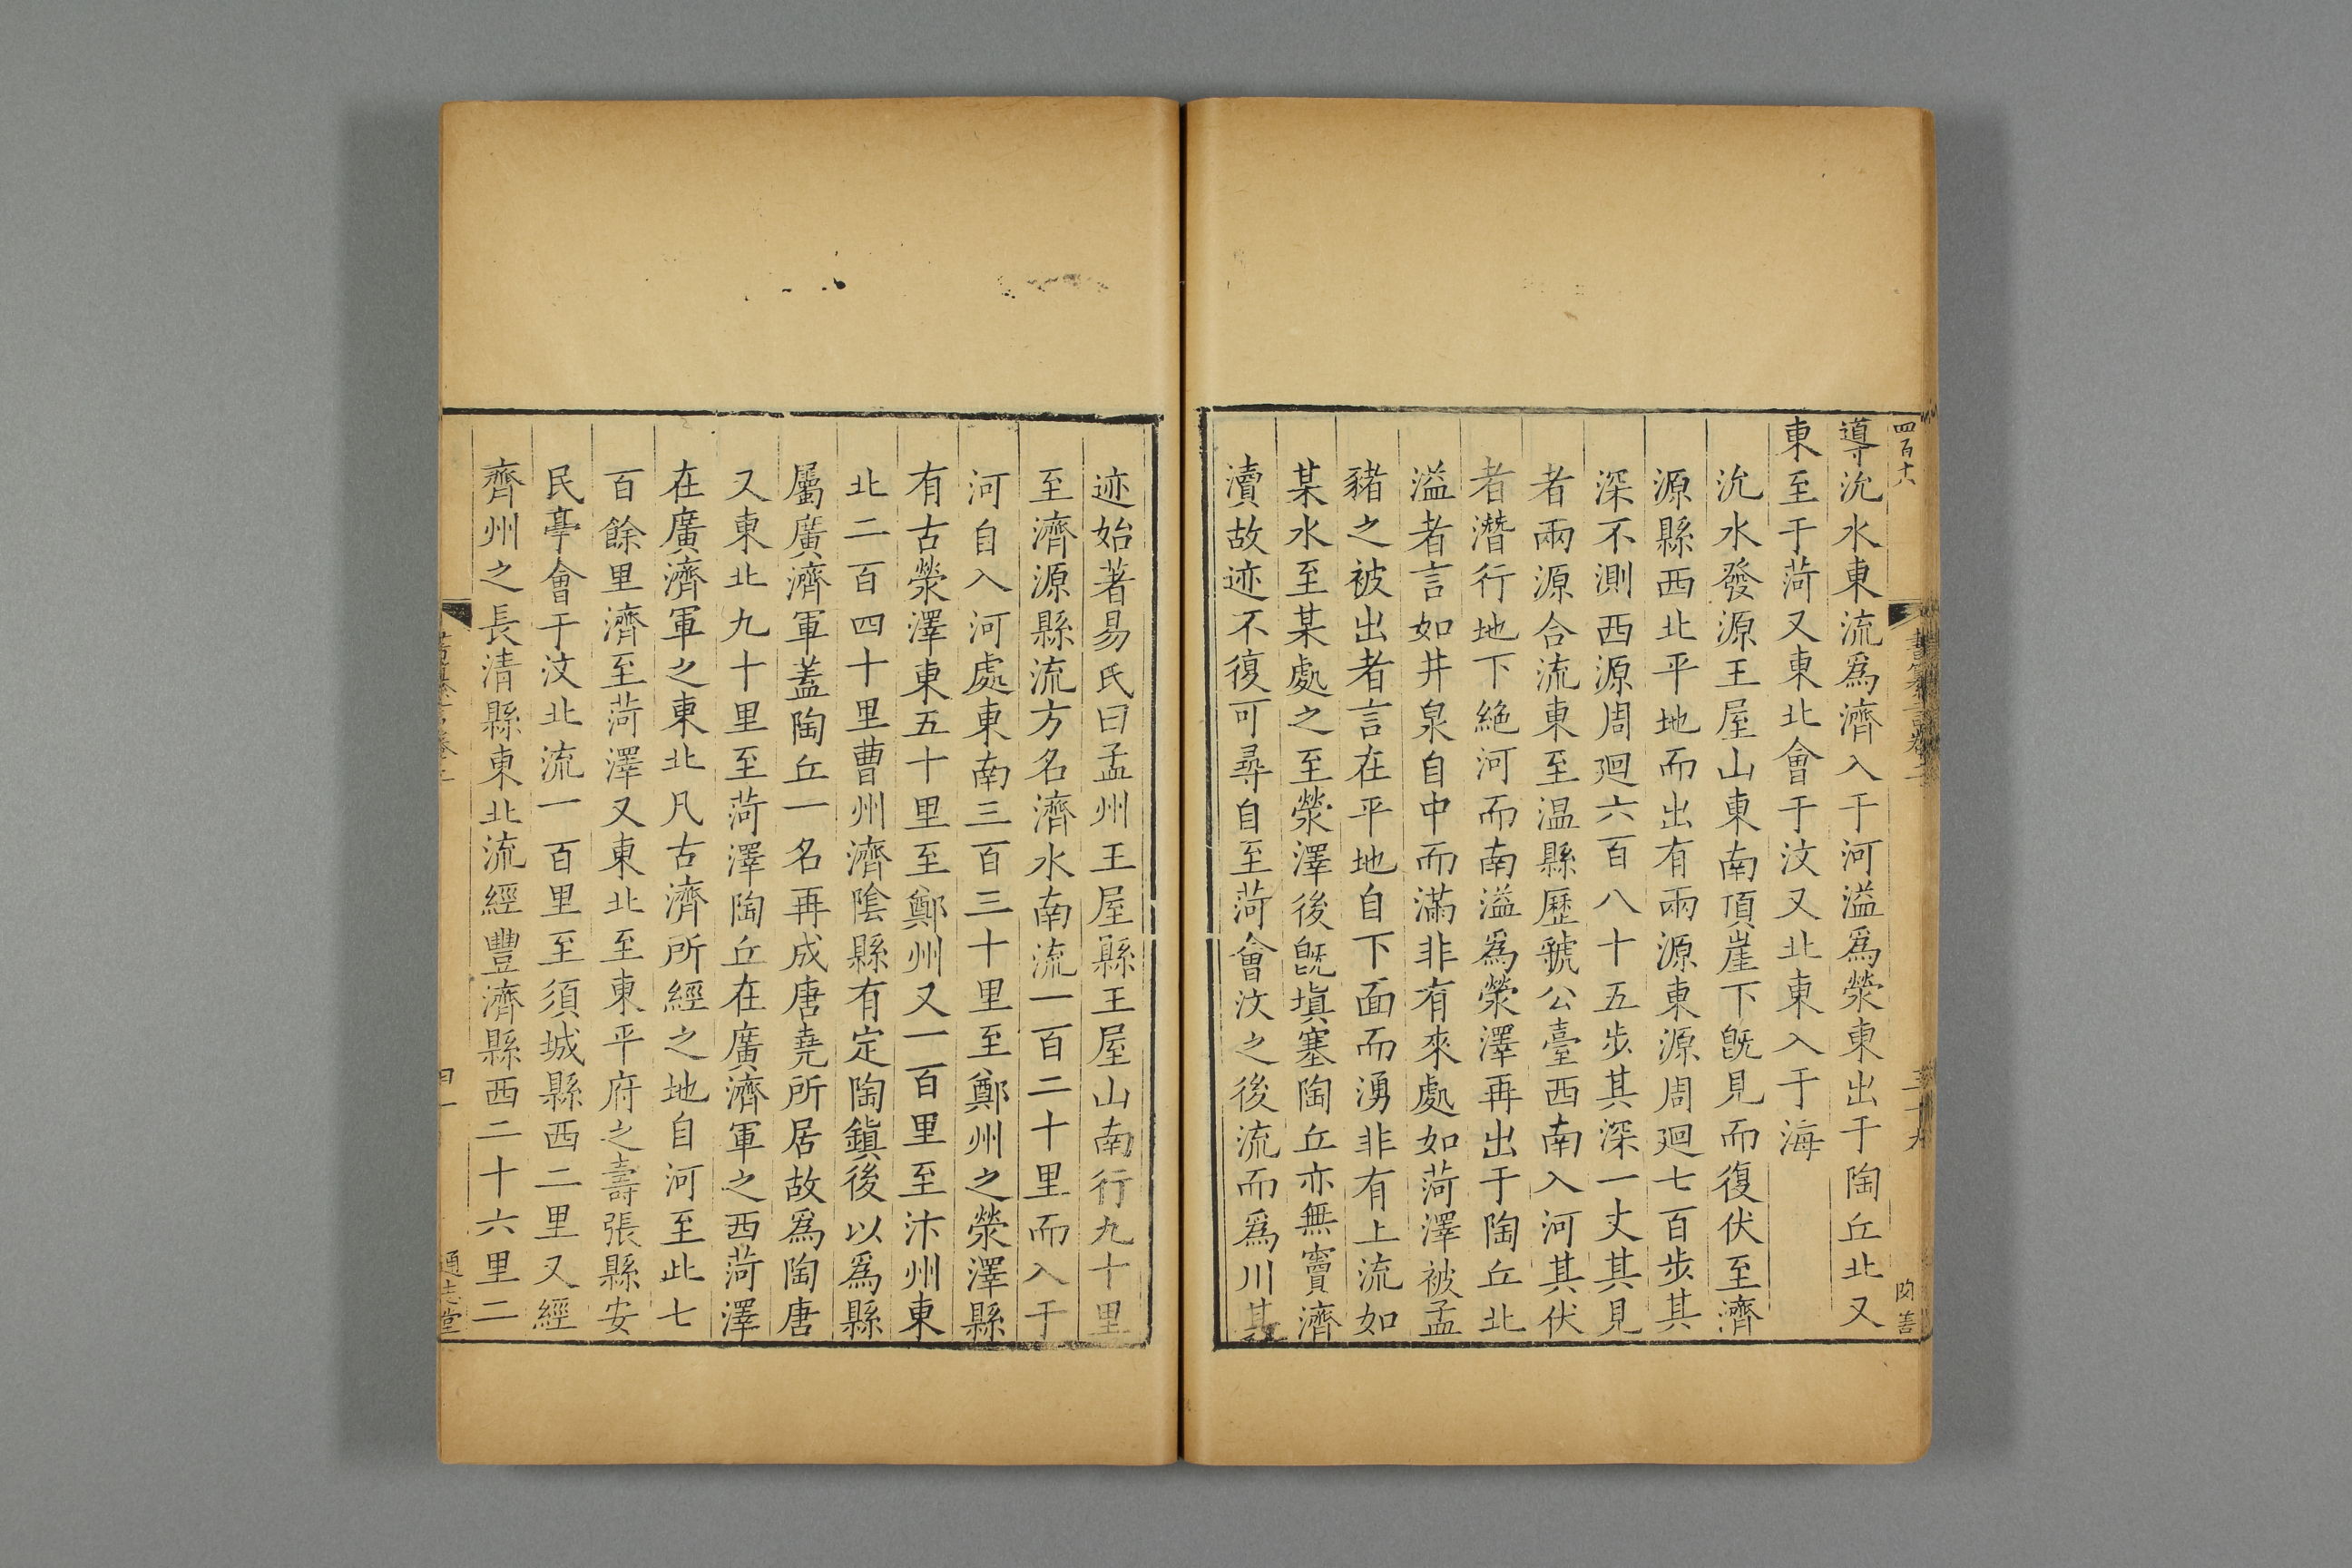 四百十六
導沇水東流爲濟入于河溢爲滎東出于陶丘北又
東至于菏又東北會于汶又北東入于海
沇水發源王屋山東南頂崖下旣見而復伏至濟
源縣西北平地而出有兩源東源周廻七百步其
深不測西源周廻六百八十五步其深一丈其見
者兩源合流東至温縣歷虢公臺西南入河其伏
者潛行地下絶河而南溢爲滎澤再出于陶丘北
溢者言如井泉自中而滿非有來處如菏澤被孟
豬之被出者言在平地自下面而湧非有上流如
某水至某處之至滎澤後旣塡塞陶丘亦無竇濟
瀆故迹不復可尋自至菏會汶之後流而爲川其
迹始著易氏曰孟州王屋縣王屋山南行九十里
至濟源縣流方名濟水南流一百二十里而入于
河自入河處東南三百三十里至鄭州之滎澤縣
有古滎澤東五十里至鄭州又一百里至汴州東
北二百四十里曹州濟隂縣有定陶鎮後以爲縣
屬廣濟軍蓋陶丘一名再成唐堯所居故爲陶唐
又東北九十里至菏澤陶丘在廣濟軍之西菏澤
在廣濟軍之東北凡古濟所經之地自河至此七
百餘里濟至菏澤又東北至東平府之壽張縣安
民亭會于汶北流一百里至須城縣西二里又經
齊州之長清縣東北流經豐濟縣西二十六里二
通志堂